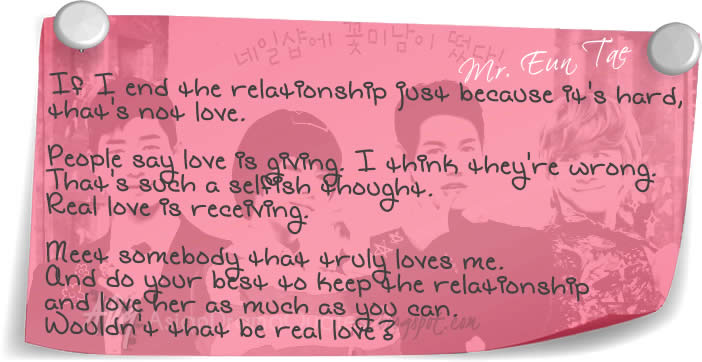 네일샵에 꽃미남이 떴다!
Mr. Eun Tae
If I end the relationship just because it's hard,
that's not love.
People say love is giving. I think they're wrong.
That's such a selfish thought.
Real love is receiving.
Meet somebody that truly loves me.
And do your best to keep the relationship
and love her as much as you can.
Wouldn't that be real love?